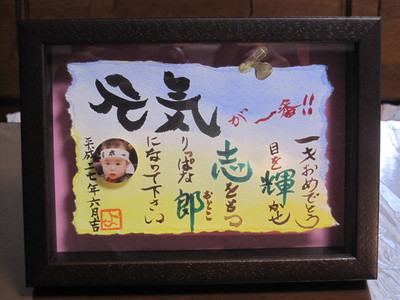 元気が一番!!
一才おめでとう
目を輝かせ
志をもつ
りっぱな郎
おとこ
になって下さい
平成二七年六月吉
よ